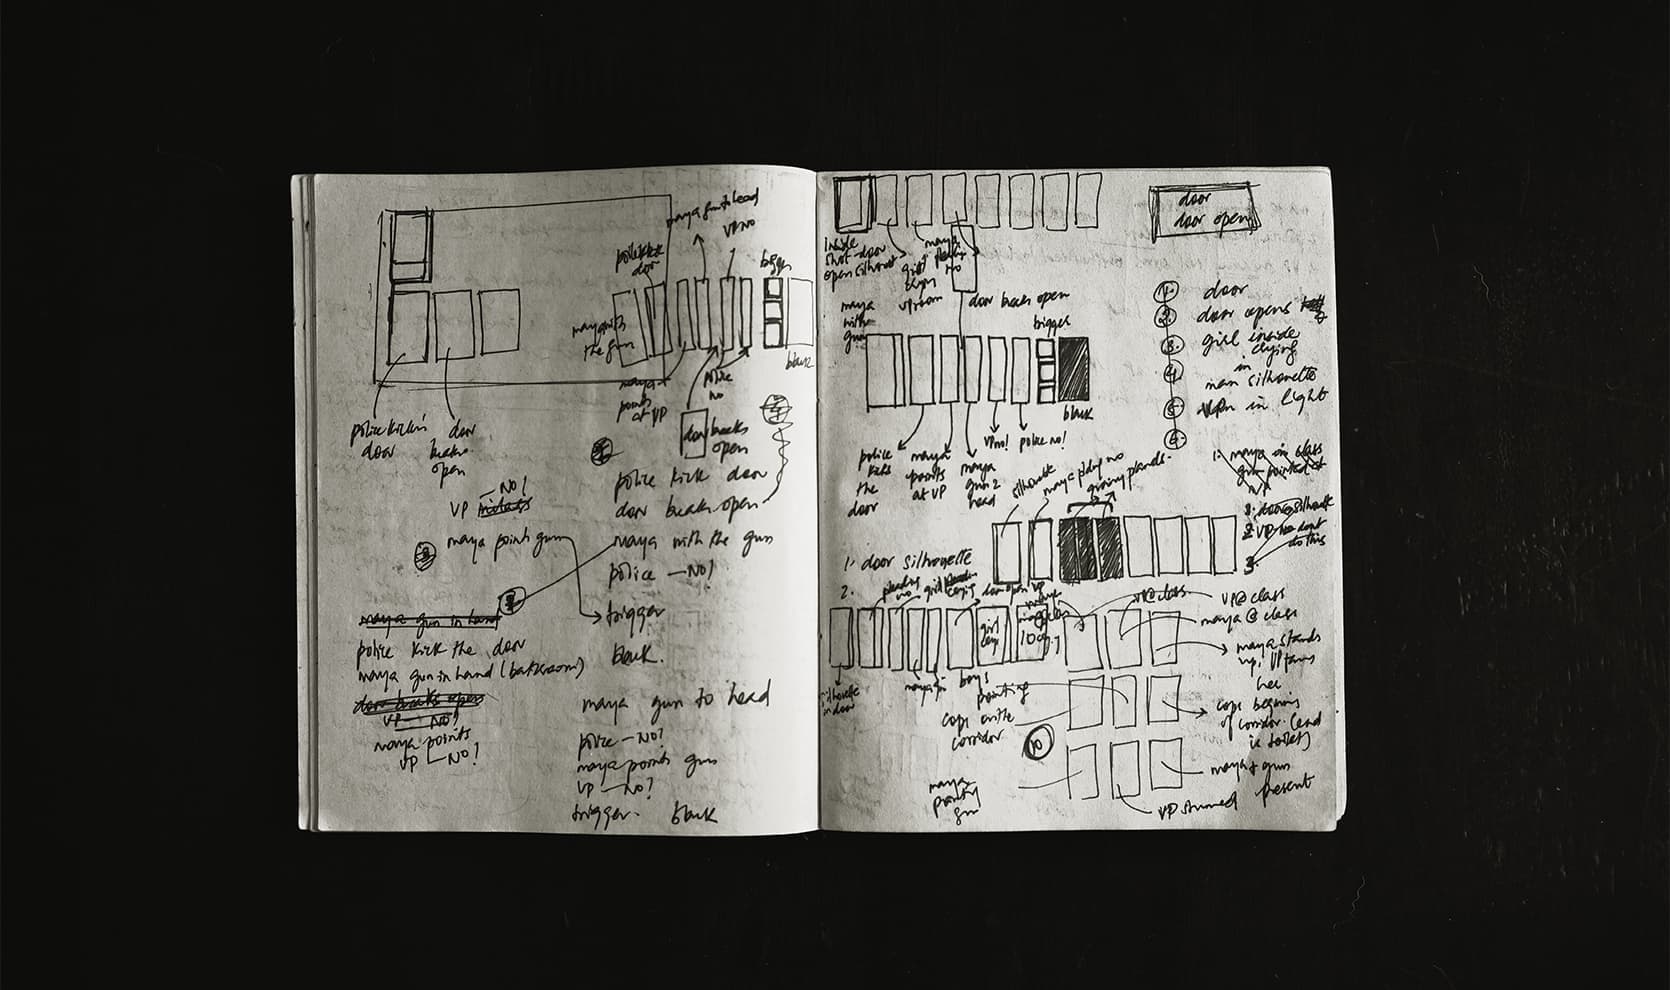 maya gun to head
VP NO
police kick
door
bigger
maya with
the gun
black
maya
points
at VP
police
no
police kickin
door
door
breaks
open
door breaks
open
police kick door
door breaks open
VP — NO!
maya points gun
maya with the gun
police — NO!
trigger
black.
maya gun in hand
police kick the door
maya gun in hand (bathroom)
door breaks open
VP — NO!
maya points
VP — NO!
maya gun to head
police — NO!
maya points gun
VP — NO?
trigger. black
door
door opens
Inside
shot - door
open silhouet
maya
no
girl
maya
with
gun
door breaks open
bigger
black
police
kicks
the
door
maya
points
at VP
maya
gun 2
head
VP no!
police no!
1. door
2. door opens
3. girl inside
crying
4. in
man silhouette
5. VP in light
6.
silhouette
1. maya in class
gun pointed at
VP
door silhouette
2. VP no dont
do this
3.
1. door silhouette
2.
pleading
no
girl
crying
door open VP
girl
VP @ class
VP @ class
maya @ class
maya stands
up. VP turns
her
silhouette
in door
boys
pointing
cops in the
corridor
10
cops begining
of corridor (end
is toilet)
maya
pointing
gun
maya + gun
present
VP stunned